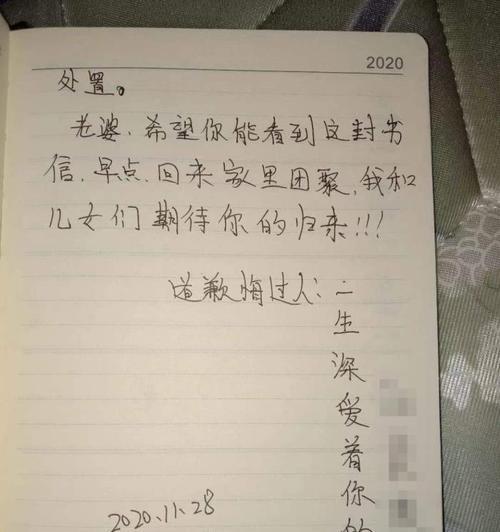 2020
处置。
老婆，希望你能看到这封书
信，早点回来家里团聚，我和
儿女们期待你的归来!!!
道歉悔过人：一
生
深
爱
着
你
的
2020.11.28